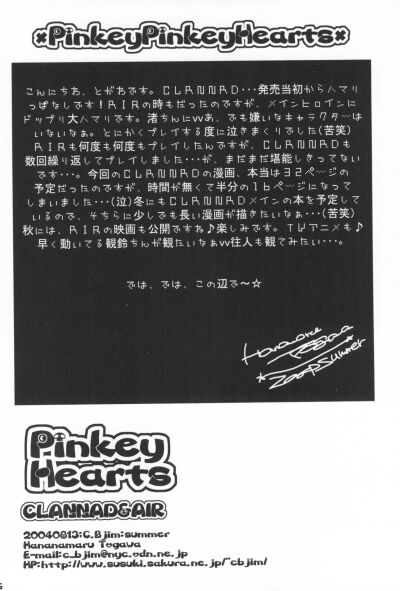 *PinkeyPinkeyHearts*
こんにちお、とがわです。CLANNAD・・・発売当初からハマリ
っぱなしです!AIRの時もだったのですが、メインヒロインに
ドップリ大ハマリです。渚ちんにvvあ、でも嫌いなキャラクターは
いないなぁ。とにかくプレイする度に泣きまくりでした(苦笑)
AIRも何度も何度もプレイしたんですが、CLANNADも
数回繰り返してプレイしました・・・が、まだまだ堪能しきってない
です・・・。今回のCLANNADの漫画、本当は32ページの
予定だったのですが、時間が無くて半分の16ページになって
しまいました・・・(泣)冬にもCLANNADメインの本を予定して
いるので、そちらに少しでも長い漫画が描きたいなぁ・・・(苦笑)
秋には、AIRの映画も公開ですね♪楽しみです。TVアニメも♪
早く動いてる観鈴ちんが観たいなぁvv往人も観てみたい・・・。
では、では、この辺で〜☆
Hananamaru
Togawa
2004 Summer
Pinkey
Hearts
CLANNAD&AIR
20040813:C.Bjim:summer
Hananamaru Togawa
E-mail:c_bjim@nyc.odn.ne.jp
HP:http://www.susuki.sakura.ne.jp/~cbjim/